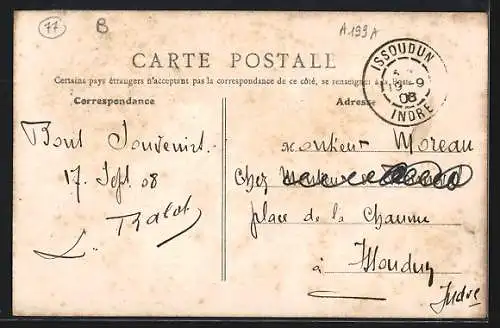 77
B
A199A
CARTE POSTALE
Certains pays étrangers n'acceptent pas la correspondance de ce côté, se renseigner à la Poste
Correspondance
Adresse
ISSOUDUN
19-9
08
INDRE
Bout Souvenirs.
17 Sept 08
Monsieur Moreau
Chez
place de la Chaume
à Issoudun
Indre